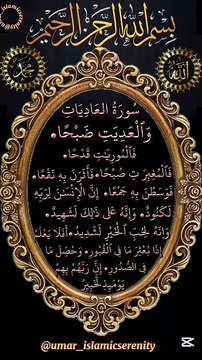 بسم الله الرحمن الرحيم
محمد
الله
سُورَةُ العَادِيَاتِ
وَالْعَدِيَتِ ضَبْحًا.
فَالْمُورِيَتِ قَدْحًا.
فَالْمُغِيرَتِ صُبْحًا. فَأَثَرْنَ بِهِ نَقْعًا.
فَوَسَطْنَ بِهِ جَمْعًا. إِنَّ الْإِنْسَنَ لِرَبِّهِ
لَكَنُودٌ. وَإِنَّهُ عَلَى ذَلِكَ لَشَهِيدٌ.
وَإِنَّهُ لِحُبِّ الْخَيْرِ لَشَدِيدٌ. أَفَلَا يَعْلَمُ
إِذَا بُعْثِرَ مَا فِي الْقُبُورِ. وَحُصِّلَ مَا
فِي الصُّدُورِ. إِنَّ رَبَّهُم بِهِمْ
يَوْمَئِذٍ لَّخَبِيرٌ
@umar_islamicserenity